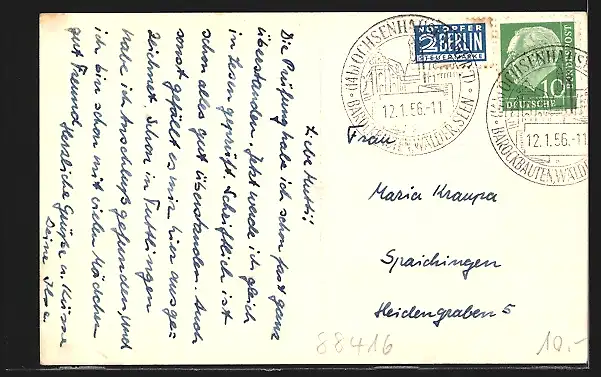 Liebe Mutti!
Die Prüfung habe ich schon fast ganz
überstanden. Jetzt werde ich gleich
in Lesen geprüft. Schriftlich ist
schon alles gut überstanden. Auch
sonst gefällt es mir hier ausge-
zeichnet. Schon in Tuttlingen
habe ich Anschluß gefunden, und
ich bin schon mit vielen Mädchen
gut Freund. Herzliche Grüße u. Küsse
Deine Ilse
NOTOPFER
2 BERLIN
STEUERMARKE
DEUTSCHE
BUNDESPOST
10
OCHSENHAUSEN
12.1.56.-11
BAROCKBAUTEN, WÄLDER, SEEN
OCHSENHAUSEN
12.1.56.-11
BAROCKBAUTEN, WÄLDER
Frau
Maria Kraupa
Spaichingen
Heidengraben 5
88416
10.-